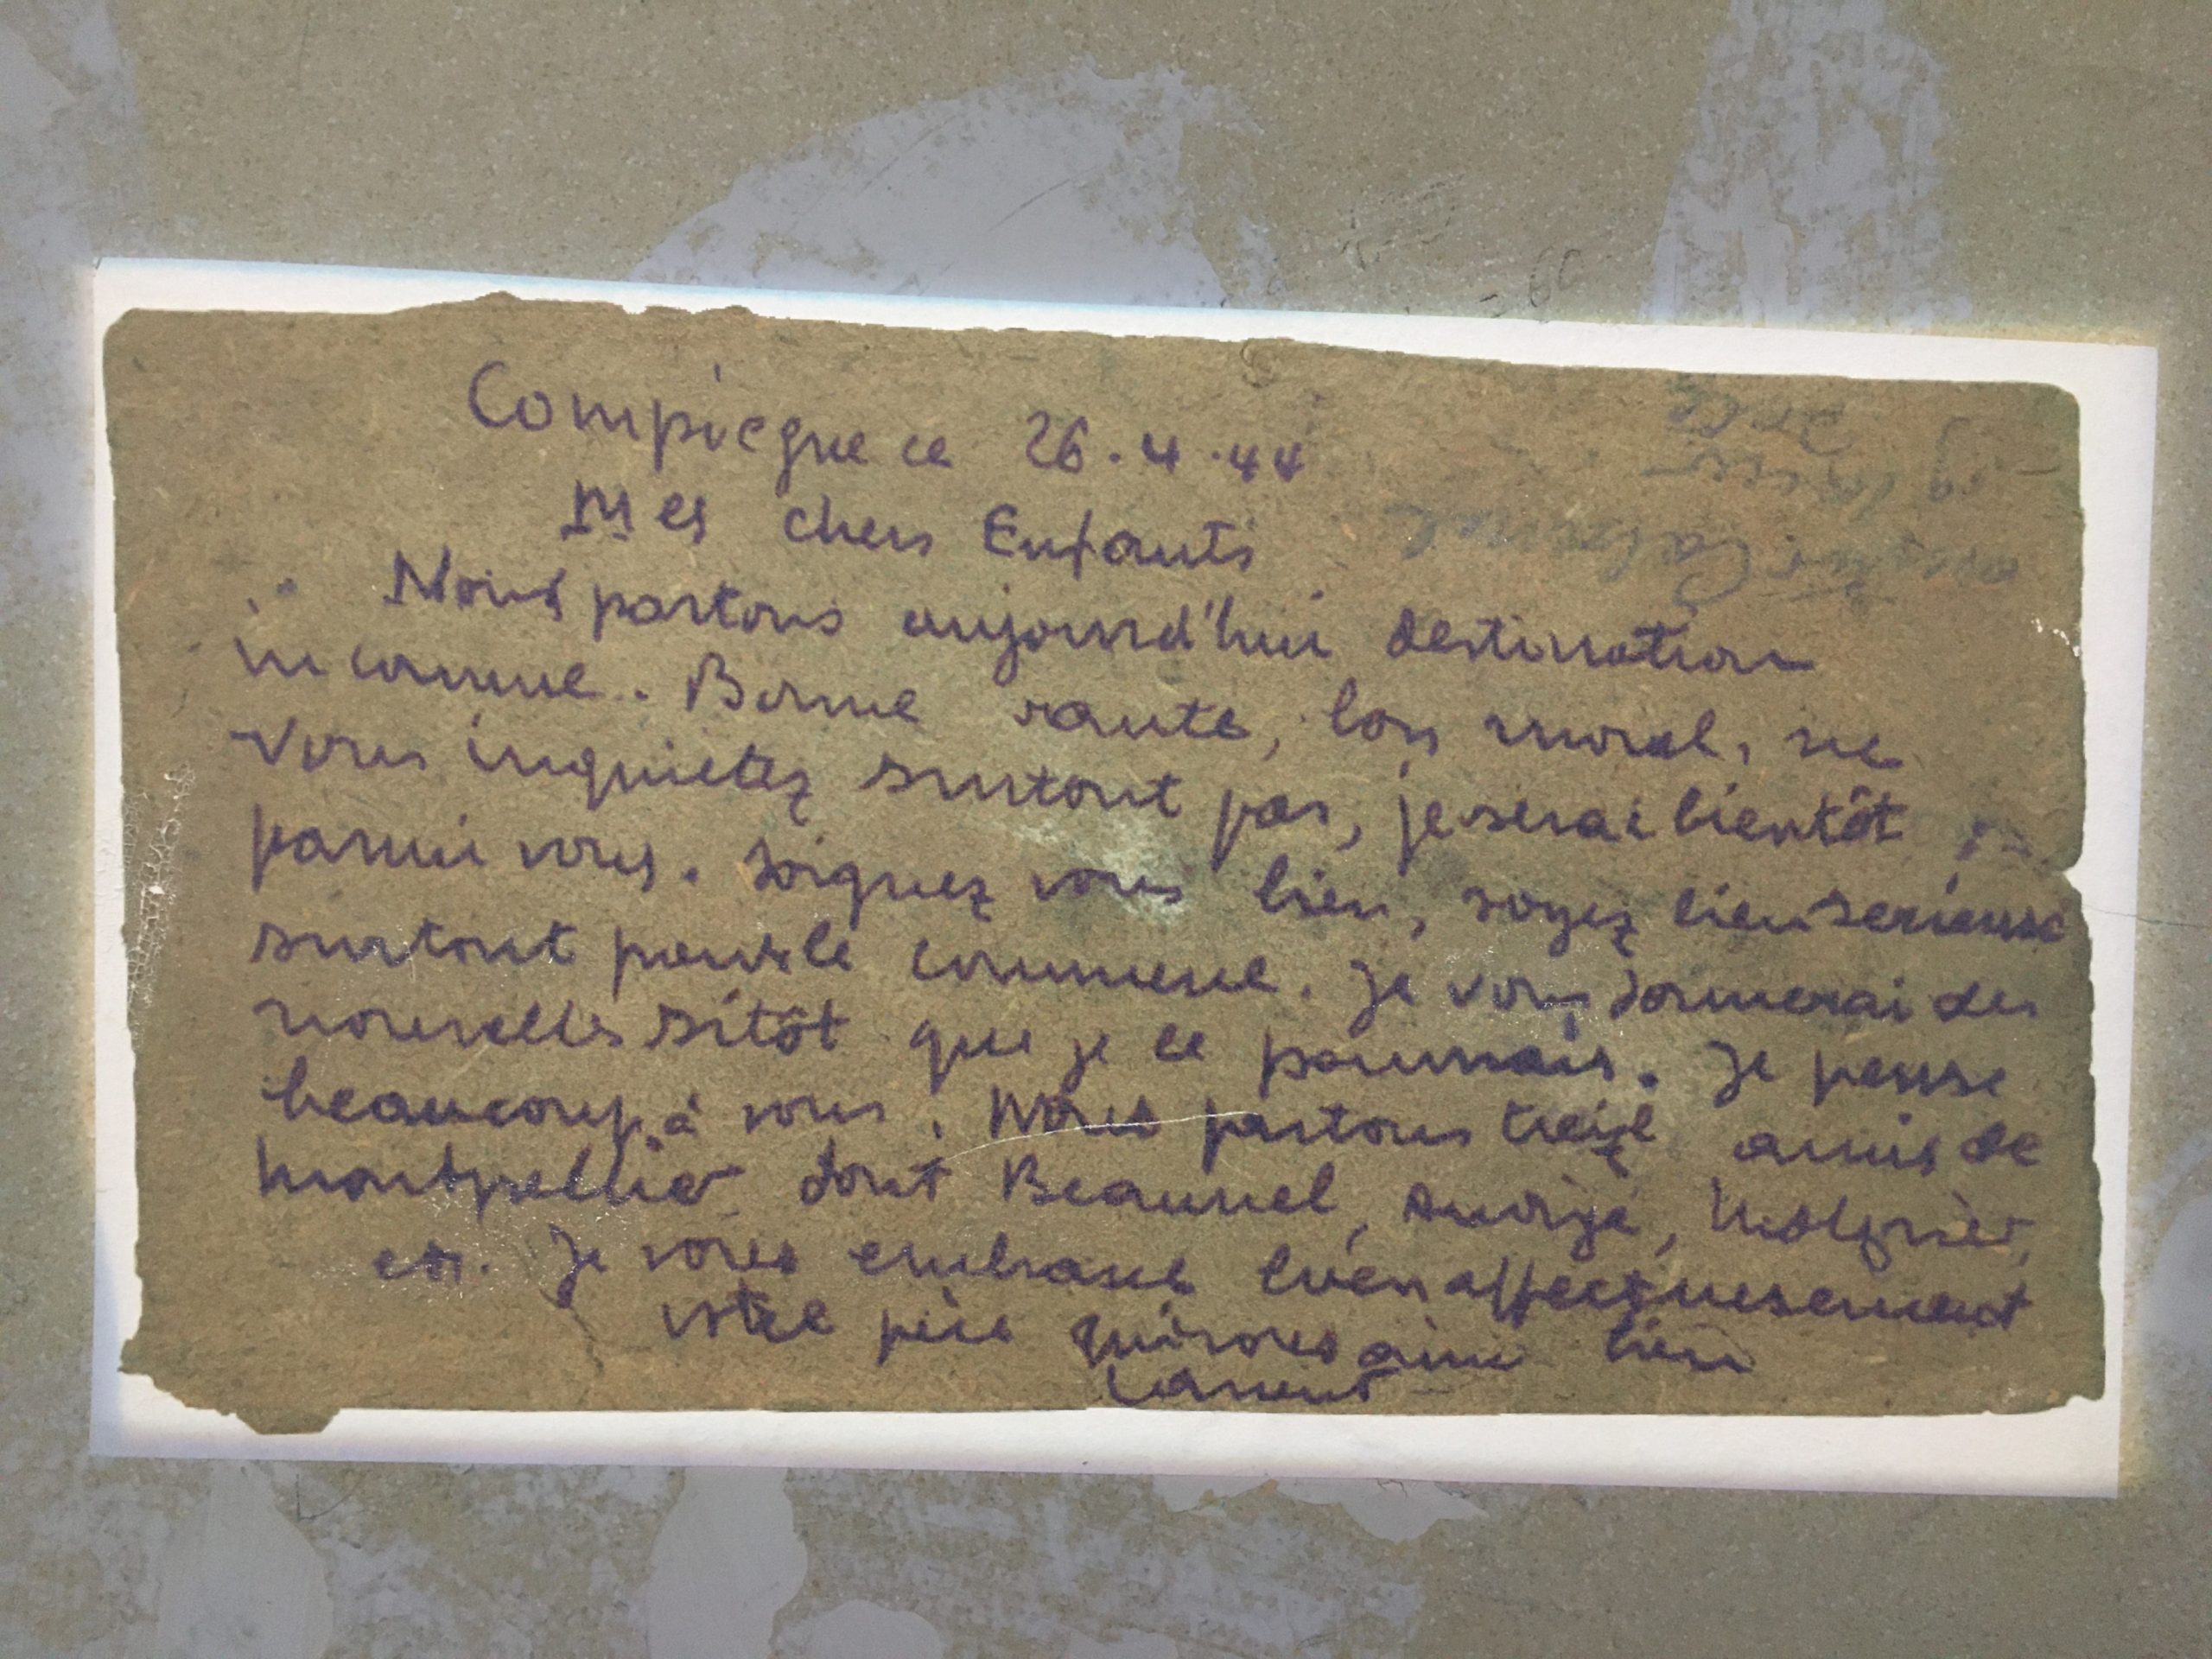 Compiegne ce 26.4.44
Mes chers Enfants
Nous partons aujourd'hui destination
inconnue. Bonne sante, bon moral, ne
vous inquietez surtout pas, je serai bientôt
parmi vous. Soignez vous bien, soyez bien serieuse
surtout pour le commerce. Je vous donnerai des
nouvelles sitôt que je le pourrais. Je pense
beaucoup à vous. Nous partons treize amis de
Montpellier dont Beaumel,
etc. Je vous embrasse bien affectueusement
votre père qui vous aime bien